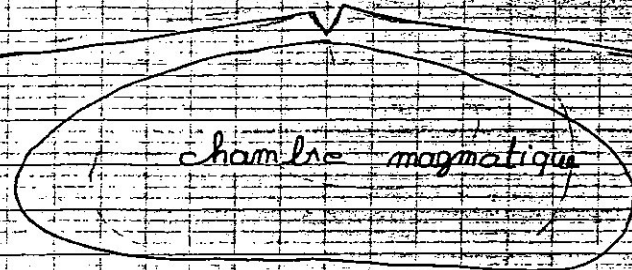 chambre magmatique